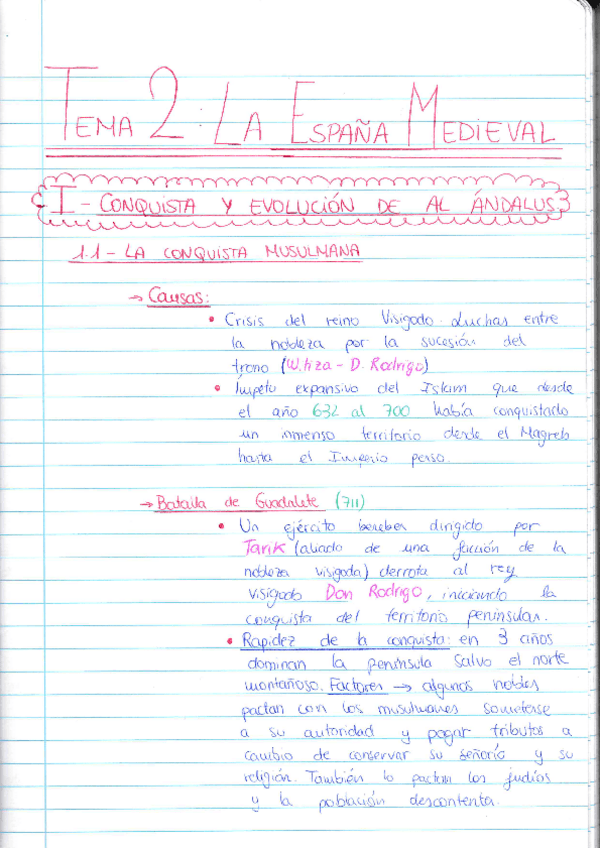 TEMA 2: LA ESPAÑA MEDIEVAL
I - CONQUISTA Y EVOLUCIÓN DE AL ÁNDALUS
1.1 - LA CONQUISTA MUSULMANA
→ Causas:
• Crisis del reino Visigodo. Luchas entre
la nobleza por la sucesión del
trono (Witiza - D. Rodrigo)
• Ímpetu expansivo del Islam que desde
el año 632 al 700 había conquistado
un inmenso territorio desde el Magreb
hasta el Imperio persa.
→ Batalla de Guadalete (711)
• Un ejército bereber dirigido por
Tarik (aliado de una facción de la
nobleza visigoda) derrota al rey
visigodo Don Rodrigo, iniciando la
conquista del territorio peninsular.
• Rapidez de la conquista: en 3 años
dominan la península salvo el norte
montañoso. Factores → algunos nobles
pactan con los musulmanes someterse
a su autoridad y pagar tributos a
cambio de conservar su señorío y su
religión. También lo pactan los judíos
y la población descontenta.